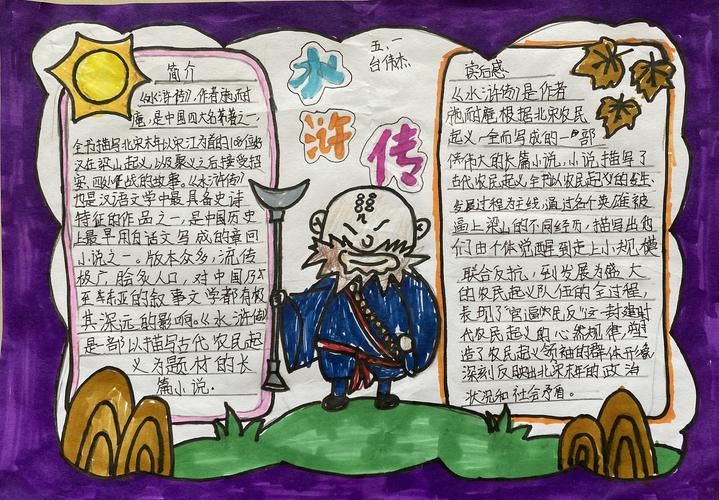 水
浒
传
五、一
台伟杰
简介
《水浒传》，作者施耐
庵，是中国四大名著之一，
全书描写北宋末年以宋江为首的108位好
汉在梁山起义，以及聚义之后接受招
安、四处征战的故事。《水浒传》
也是汉语文学中最具备史诗
特征的作品之一，是中国历史
上最早用白话文写成的章回
小说之一。版本众多，流传
极广，脍炙人口，对中国乃
至东亚的叙事文学都有极
其深远的影响。《水浒传》
是一部以描写古代农民起
义为题材的长
篇小说.
读后感
《水浒传》是作者
施耐庵根据北宋农民
起义一全而写成的一部
伟大的长篇小说,小说描写了
古代农民起义,全书以农民起义的发生、
发展过程为主线,通过各个英雄被
逼上梁山的不同经历,描写出他
们由个体觉醒到走上小规模
联合反抗,到发展为盛大
的农民起义队伍的全过程,
表现了"官逼民反"这一封建时
代农民起义的必然规律,塑
造了农民起义领袖的群体形象,
深刻反映出北宋末年的政治
状况和社会矛盾。